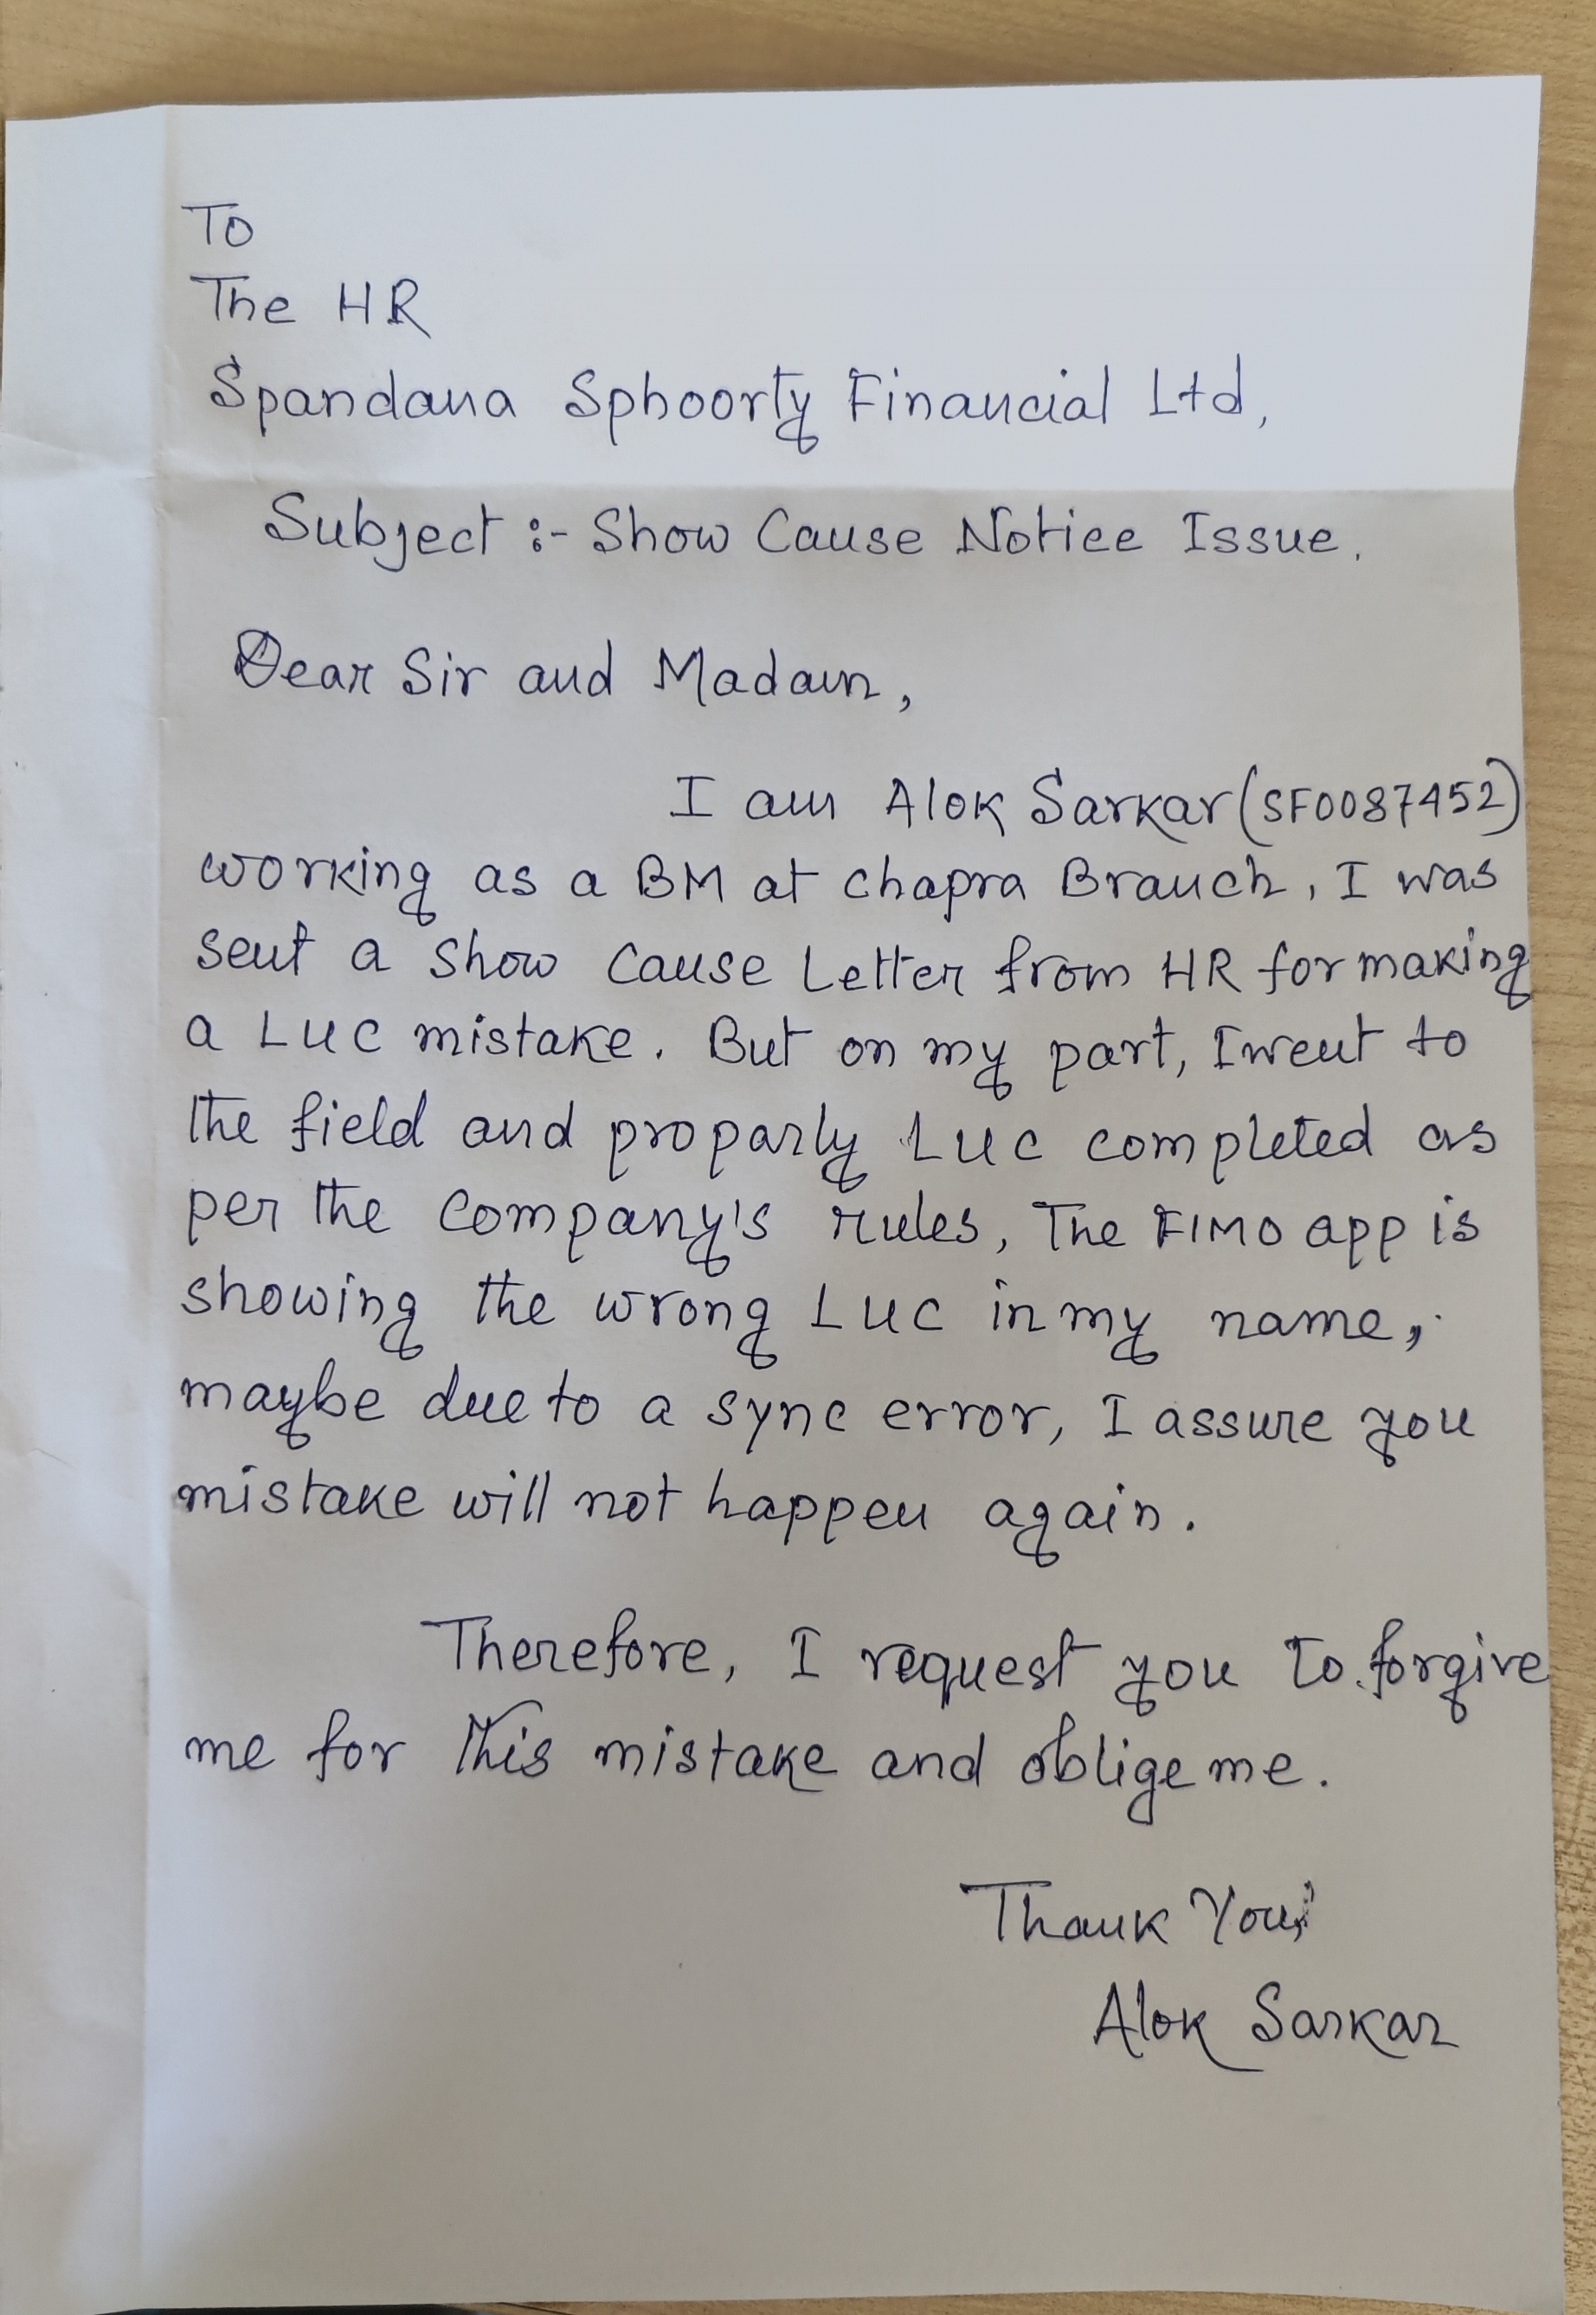 To
The HR
Spandana Sphoorty Financial Ltd,
Subject :- Show Cause Notice Issue.
Dear Sir and Madam,
I am Alok Sarkar (SF0087452)
working as a BM at chapra Branch, I was
sent a show cause Letter from HR for making
a LUC mistake. But on my part, I went to
the field and proparly LUC completed as
per the company's rules, The FIMO app is
showing the wrong LUC in my name,
maybe due to a sync error, I assure you
mistake will not happen again.
Therefore, I request you to forgive
me for this mistake and oblige me.
Thank You,
Alok Sarkar